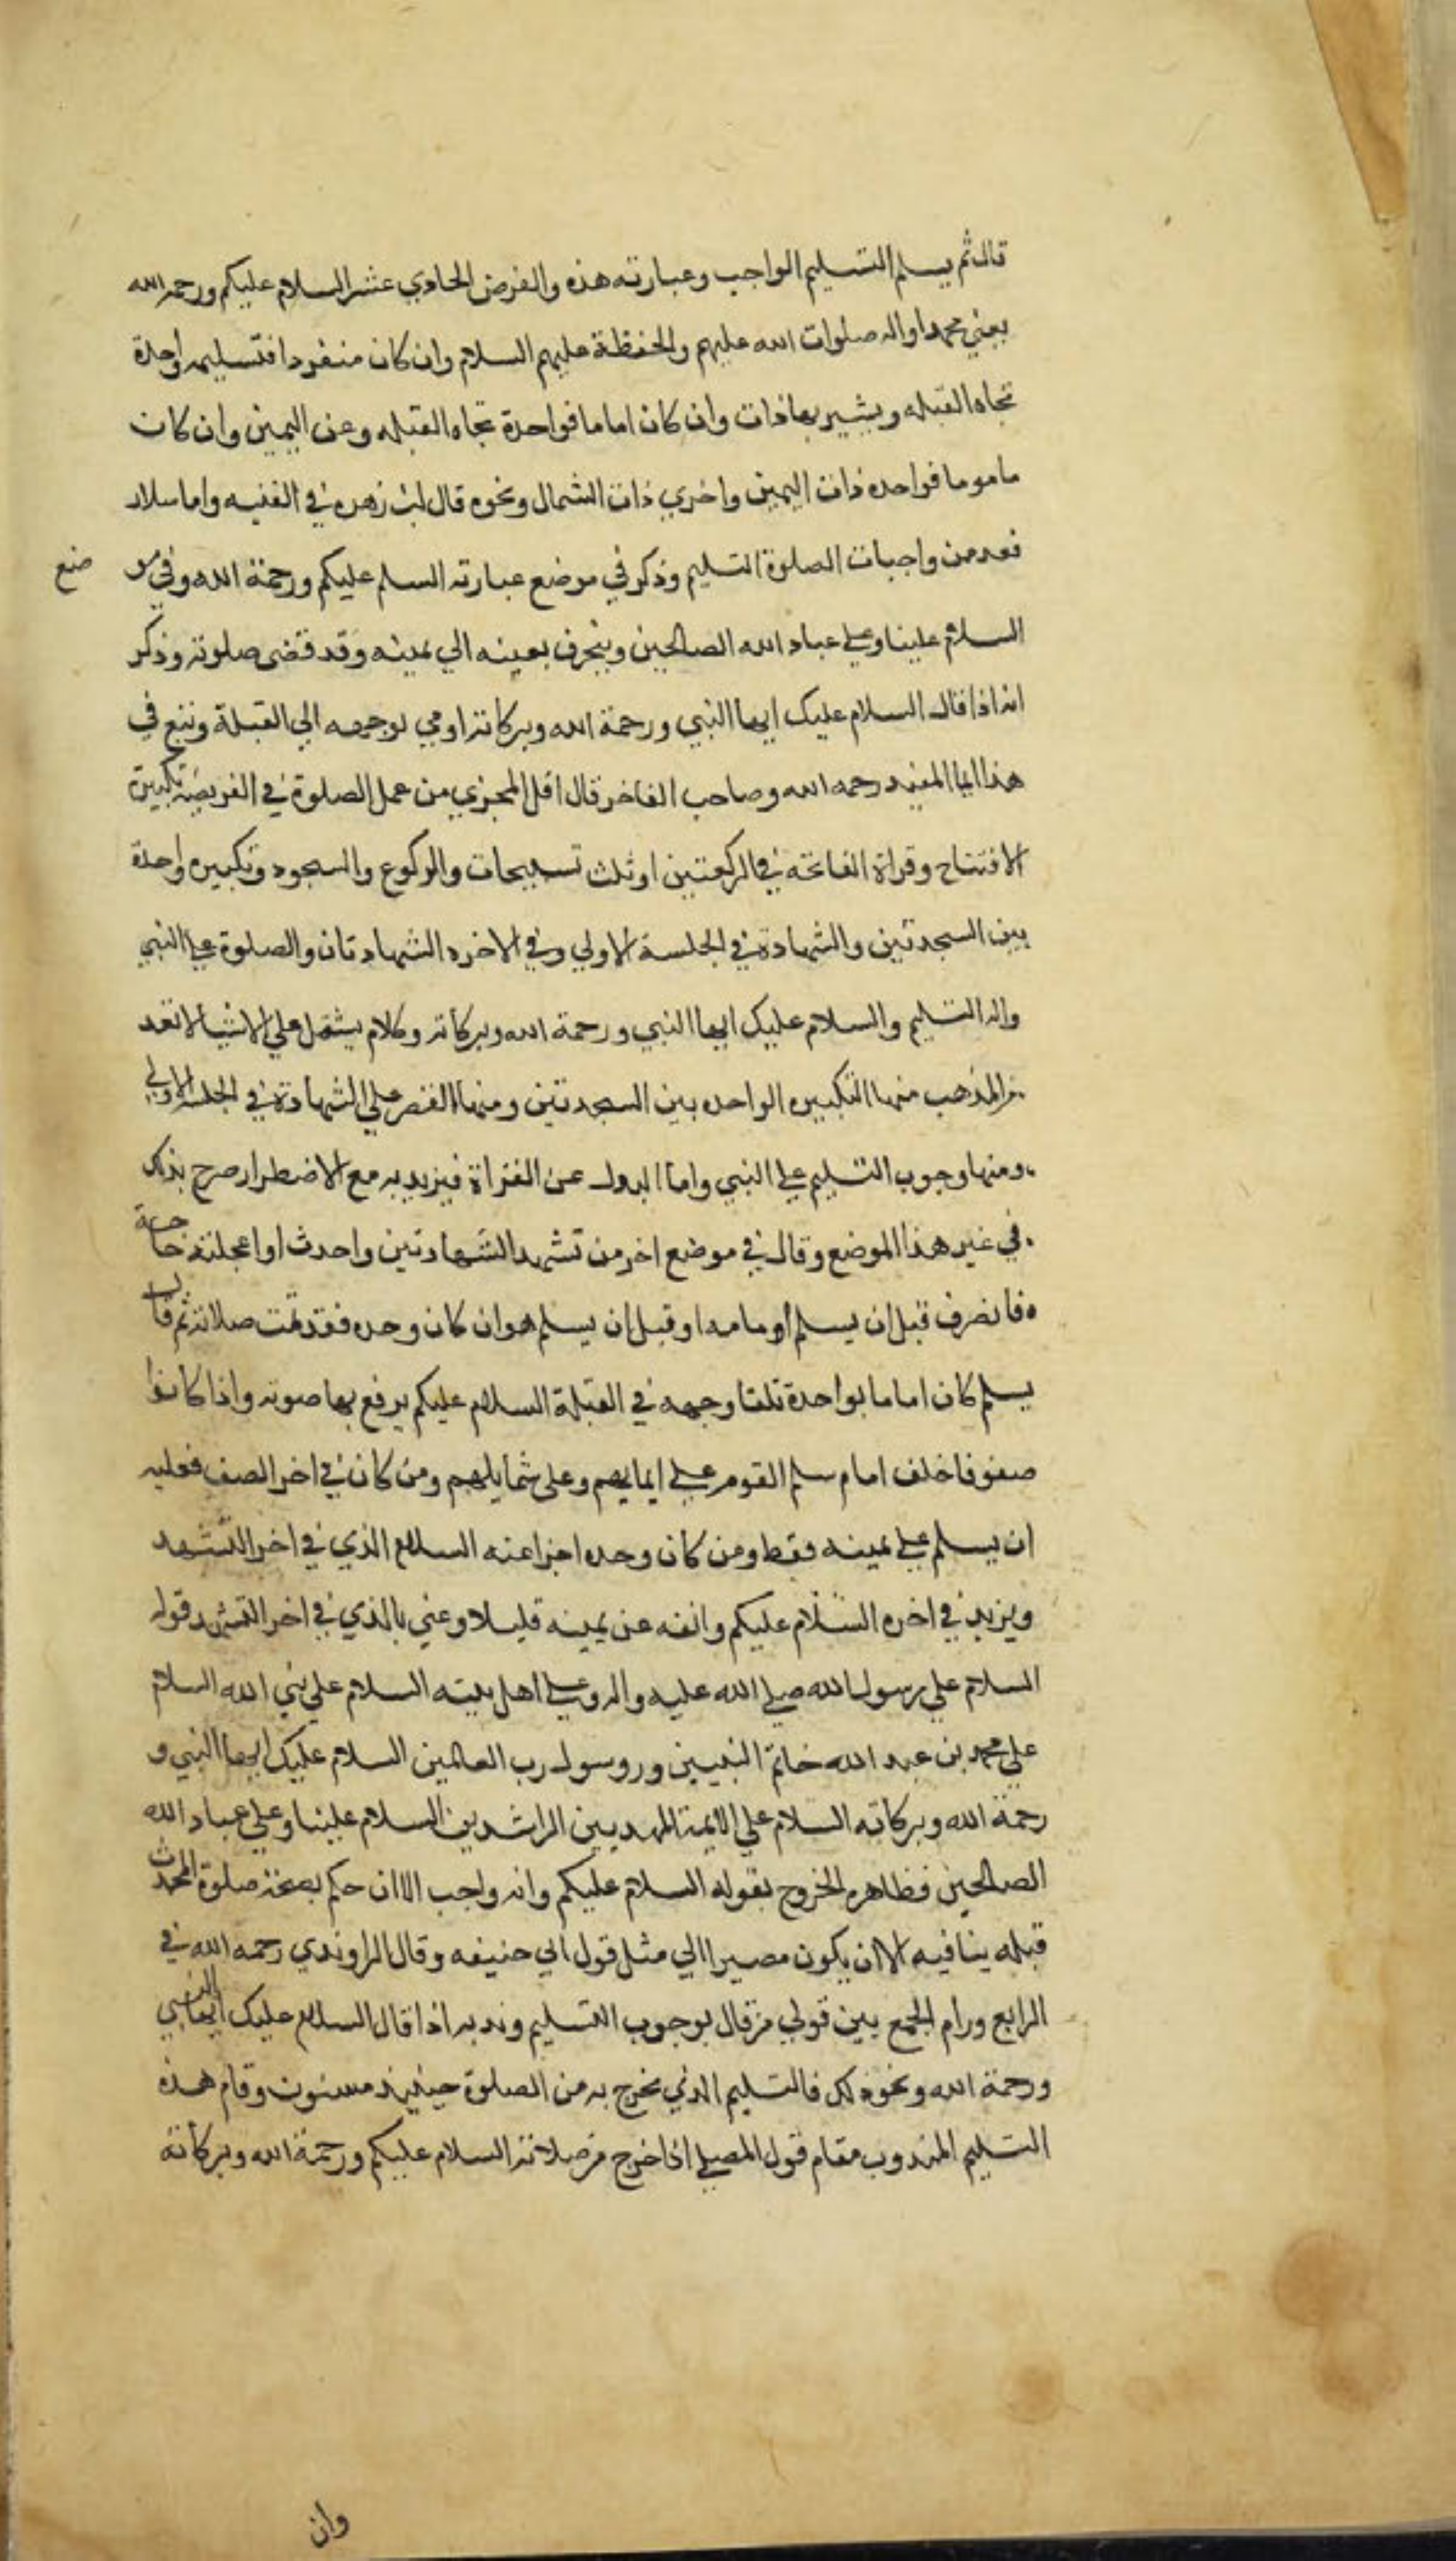 قال ثم يسلم التسليم الواجب وعبارته هذه والفرض الحادي عشر السلام عليكم ورحمة الله
يعني محمدا واله صلوات الله عليهم والحفظة عليهم السلام وان كان منفردا فتسليمه واحدة
تجاه القبله ويشير بها ذات وان كان اماما فواحدة تجاه القبله وعن اليمين وان كان
ماموما فواحده ذات اليمين واخري ذات الشمال ونحوه قال ابن زهره في الغنيه واما سلار
فعد من واجبات الصلوة التسليم وذكر في موضع عبارته السلم عليكم ورحمة الله وفي مو ضع
السلام علينا وعلي عباد الله الصالحين وينحرف بعينه الي يمينه وقد قضى صلوته وذكر
انه اذا قال السلام عليك ايها النبي ورحمة الله وبركاته اومي بوجهه الي القبلة وتبع في
هذا الما المفيد رحمه الله وصاحب الفاخر قال اقل المجزي من عمل الصلوة في الفريضة تكبيرة
الافتتاح وقراة الفاتحه في الركعتين او ثلث تسبيحات والركوع والسجود وتكبيره واحدة
بين السجدتين والشهادة في الجلسة الاولي وفي الاخره الشهادتان والصلوة علي النبي
واله التسليم والسلام عليك ايها النبي ورحمة الله وبركاته وكلام يشتمل علي اشيا لا تعد
من المذهب منها التكبيره الواحده بين السجدتين ومنها القصر علي الشهادة في الجلسة الاولي
ومنها وجوب التسليم علي النبي واما البدل عن القراة فيريد به مع الاضطرار صرح بذلك
في غير هذا الموضع وقال في موضع اخر من تشهد الشهادتين واحدث او اعجلته حاجة
فانصرف قبل ان يسلم او مامه او قبل ان يسلم هو ان كان وحده فقد تمت صلاته ثم قال
يسلم كان اماما بواحدة تلقا وجهه في القبلة السلام عليكم يرفع بها صوته واذا كانوا
صفوفا خلف امام سلم القوم علي ايمانهم وعلى شمايلهم ومن كان في اخر الصف فعليه
ان يسلم علي يمينه فقط ومن كان وحده اجزا عنه السلام الذي في اخر التشهد
ويزيد في اخره السلام عليكم وانفه عن يمينه قليلا وعني بالذي في اخر التشهد قوله
السلام علي رسول الله صلي الله عليه واله وعلي اهل بيته السلام علي نبي الله السلام
علي محمد بن عبد الله خاتم النبيين وروسول رب العالمين السلام عليك ايها النبي و
رحمة الله وبركاته السلام علي الايمة المهديين الراشدين السلام علينا وعلي عباد الله
الصالحين فظاهره الخروج بقوله السلام عليكم وانه واجب الا ان حكم بصحة صلوة المحدث
قبله ينافيه الا ان يكون مصيرا الي مثل قول ابي حنيفه وقال الراوندي رحمه الله في
الرابع ورام الجمع بين قولي من قال بوجوب التسليم وندبه اذا قال السلام عليك ايها النبي
ورحمة الله ونحو ذلك فالتسليم الذي يخرج به من الصلوة حينيذ مسنون وقام هذه
التسليم المندوب مقام قول المصلي اذا خرج من صلاته السلام عليكم ورحمة الله وبركاته
وان